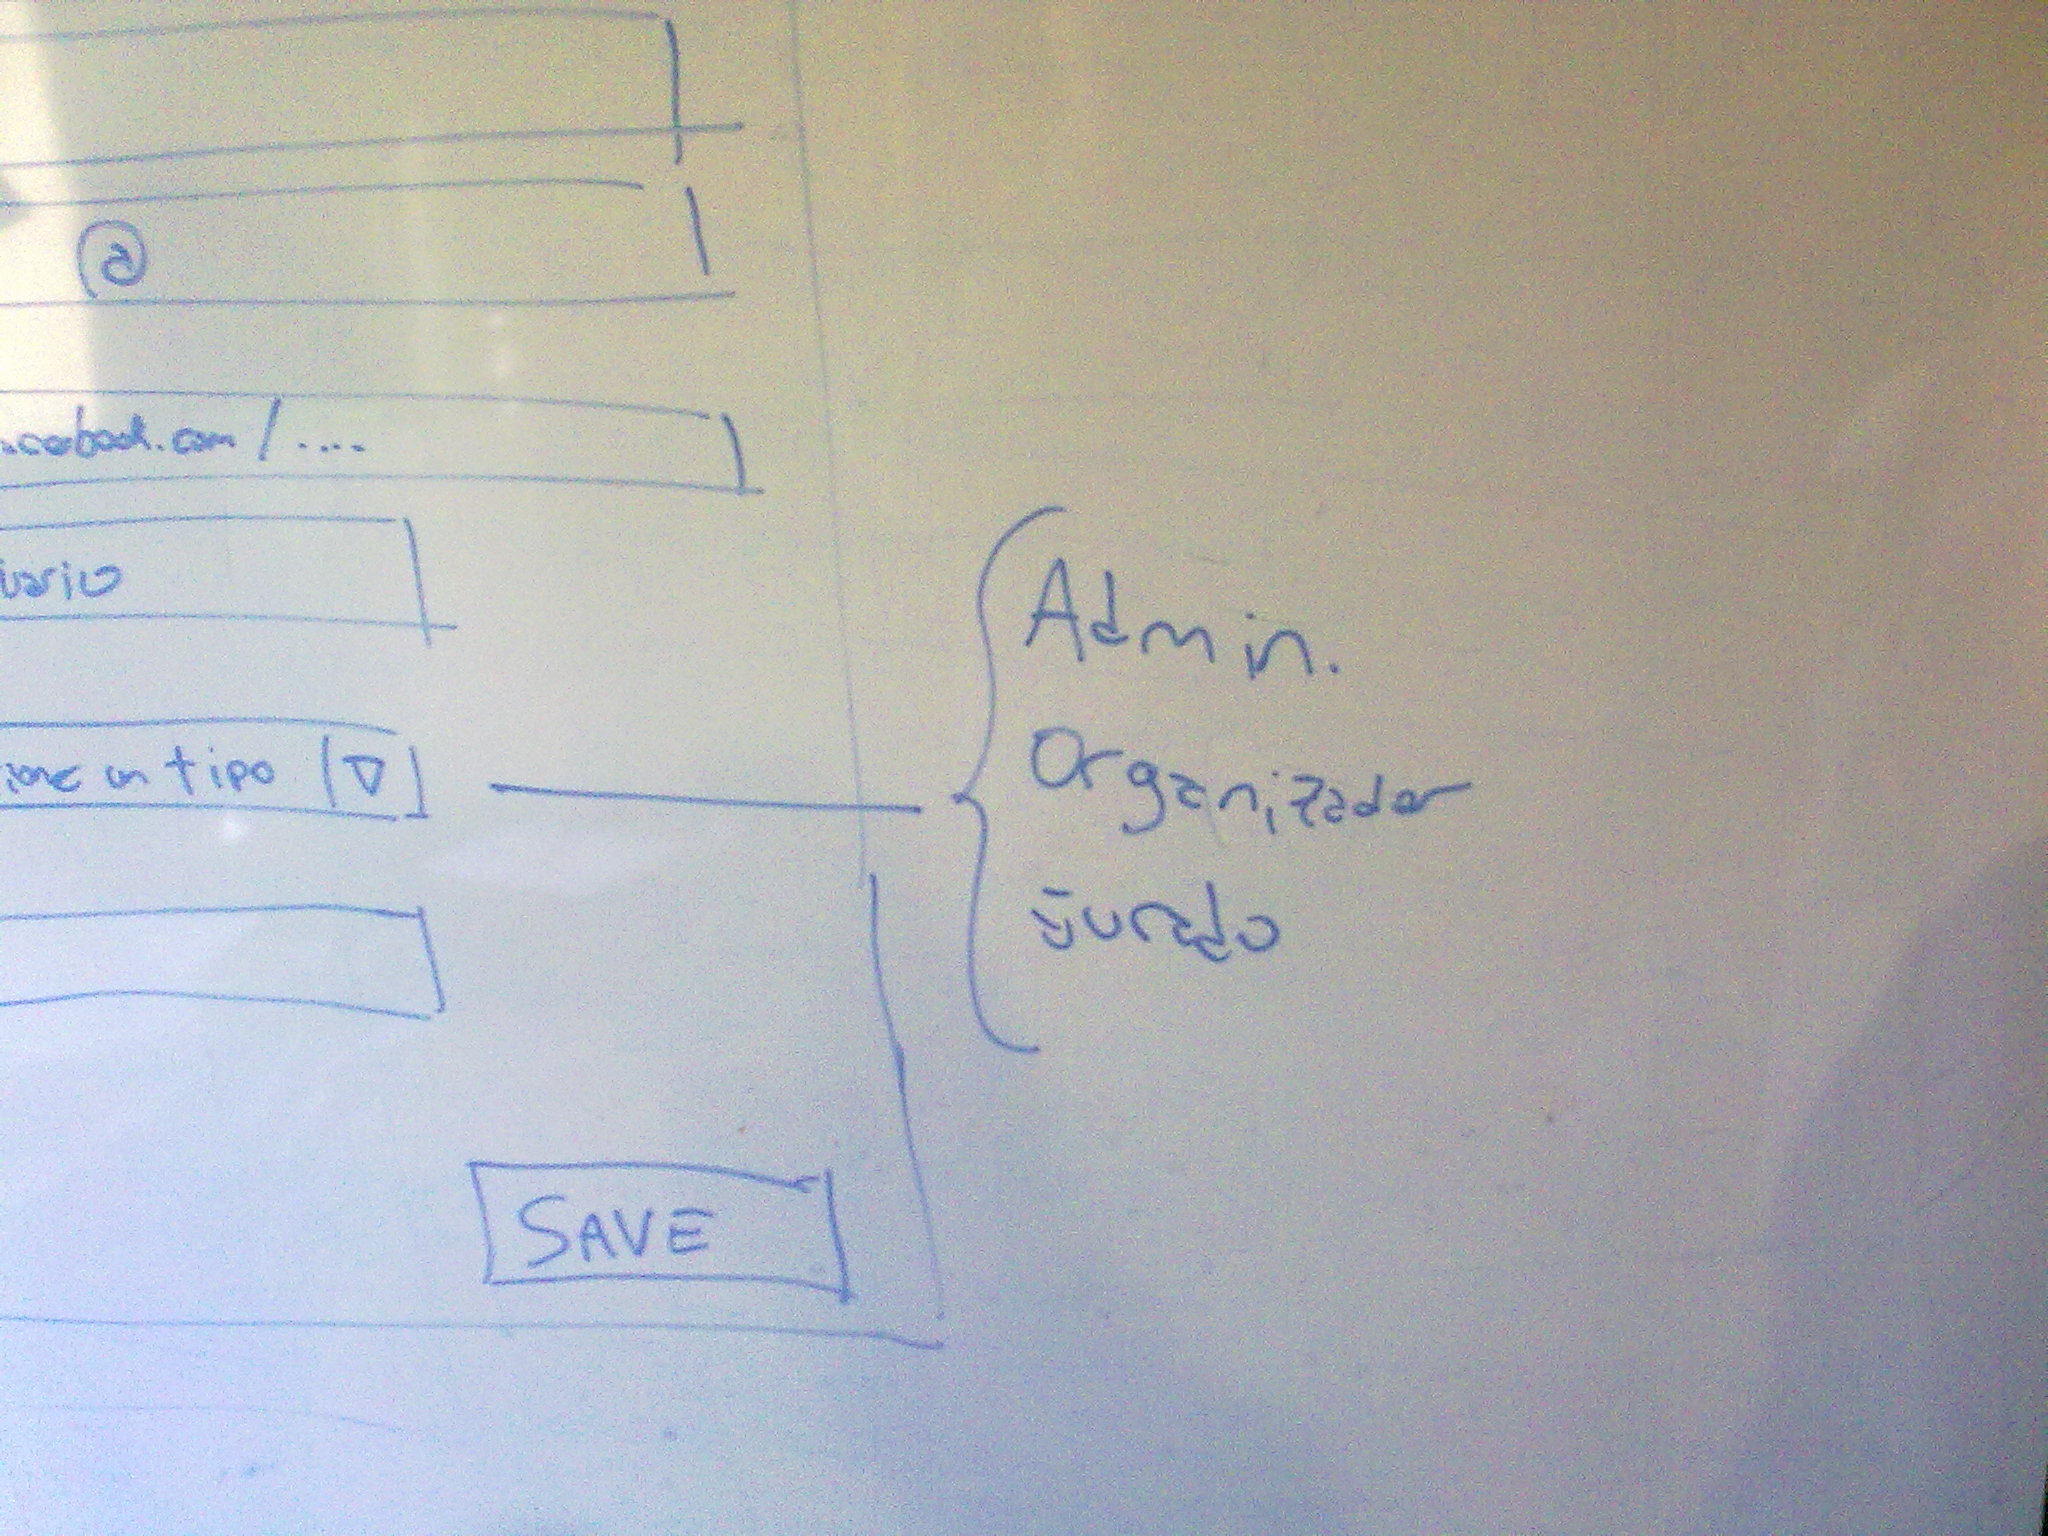 @
acebook.com/....
uario
ione un tipo
Admin.
Organizador
Jurado
SAVE